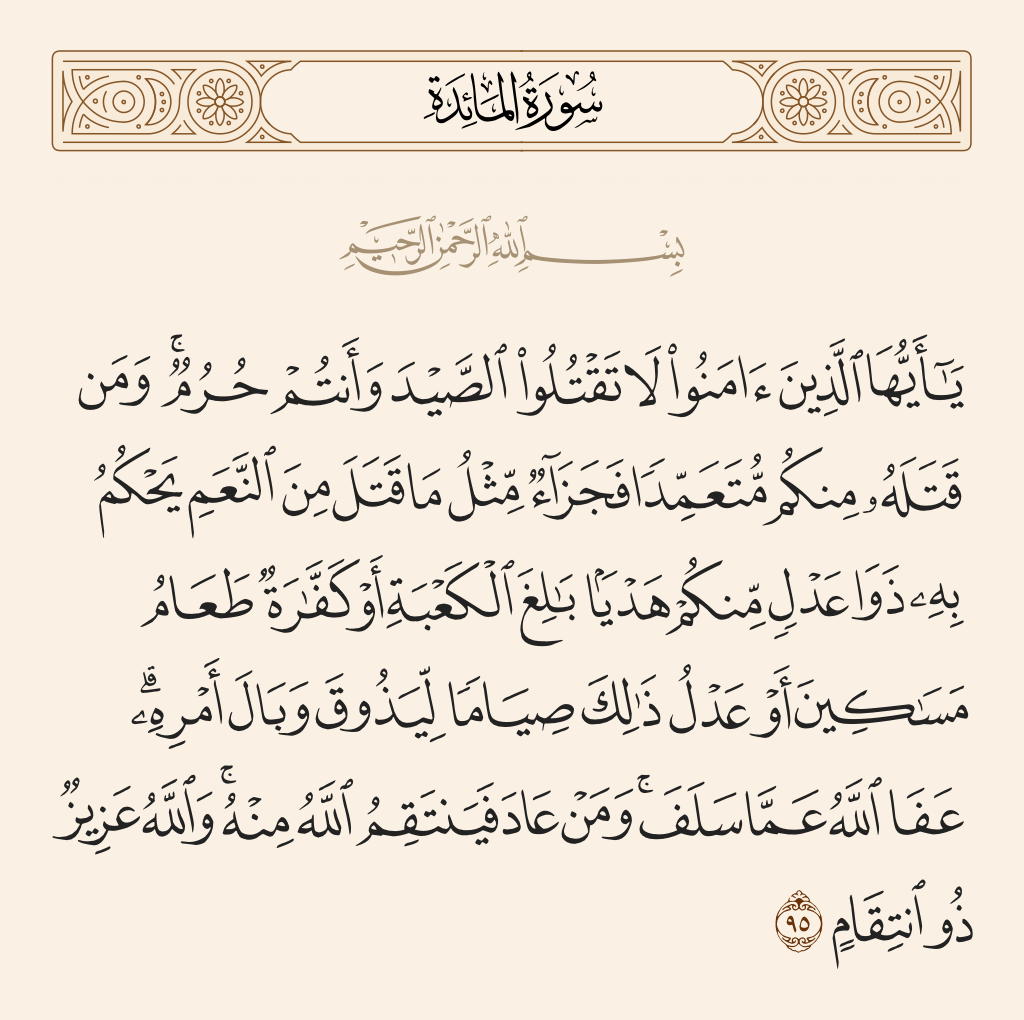 سُورَةُ المَائِدَةِ
بِسْمِ ٱللَّهِ ٱلرَّحْمَٰنِ ٱلرَّحِيمِ
يَٰٓأَيُّهَا ٱلَّذِينَ ءَامَنُوا۟ لَا تَقْتُلُوا۟ ٱلصَّيْدَ وَأَنتُمْ حُرُمٌۭ ۚ وَمَن
قَتَلَهُۥ مِنكُم مُّتَعَمِّدًۭا فَجَزَآءٌۭ مِّثْلُ مَا قَتَلَ مِنَ ٱلنَّعَمِ يَحْكُمُ
بِهِۦ ذَوَا عَدْلٍۢ مِّنكُمْ هَدْيًۢا بَٰلِغَ ٱلْكَعْبَةِ أَوْ كَفَّٰرَةٌۭ طَعَامُ
مَسَٰكِينَ أَوْ عَدْلُ ذَٰلِكَ صِيَامًۭا لِّيَذُوقَ وَبَالَ أَمْرِهِۦ ۗ
عَفَا ٱللَّهُ عَمَّا سَلَفَ ۚ وَمَنْ عَادَ فَيَنتَقِمُ ٱللَّهُ مِنْهُ ۚ وَٱللَّهُ عَزِيزٌۭ
ذُو ٱنتِقَامٍ ٩٥